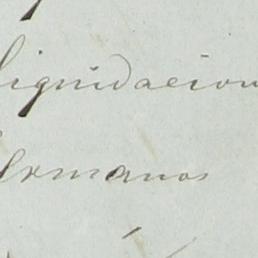 liquidacion
Hermanos